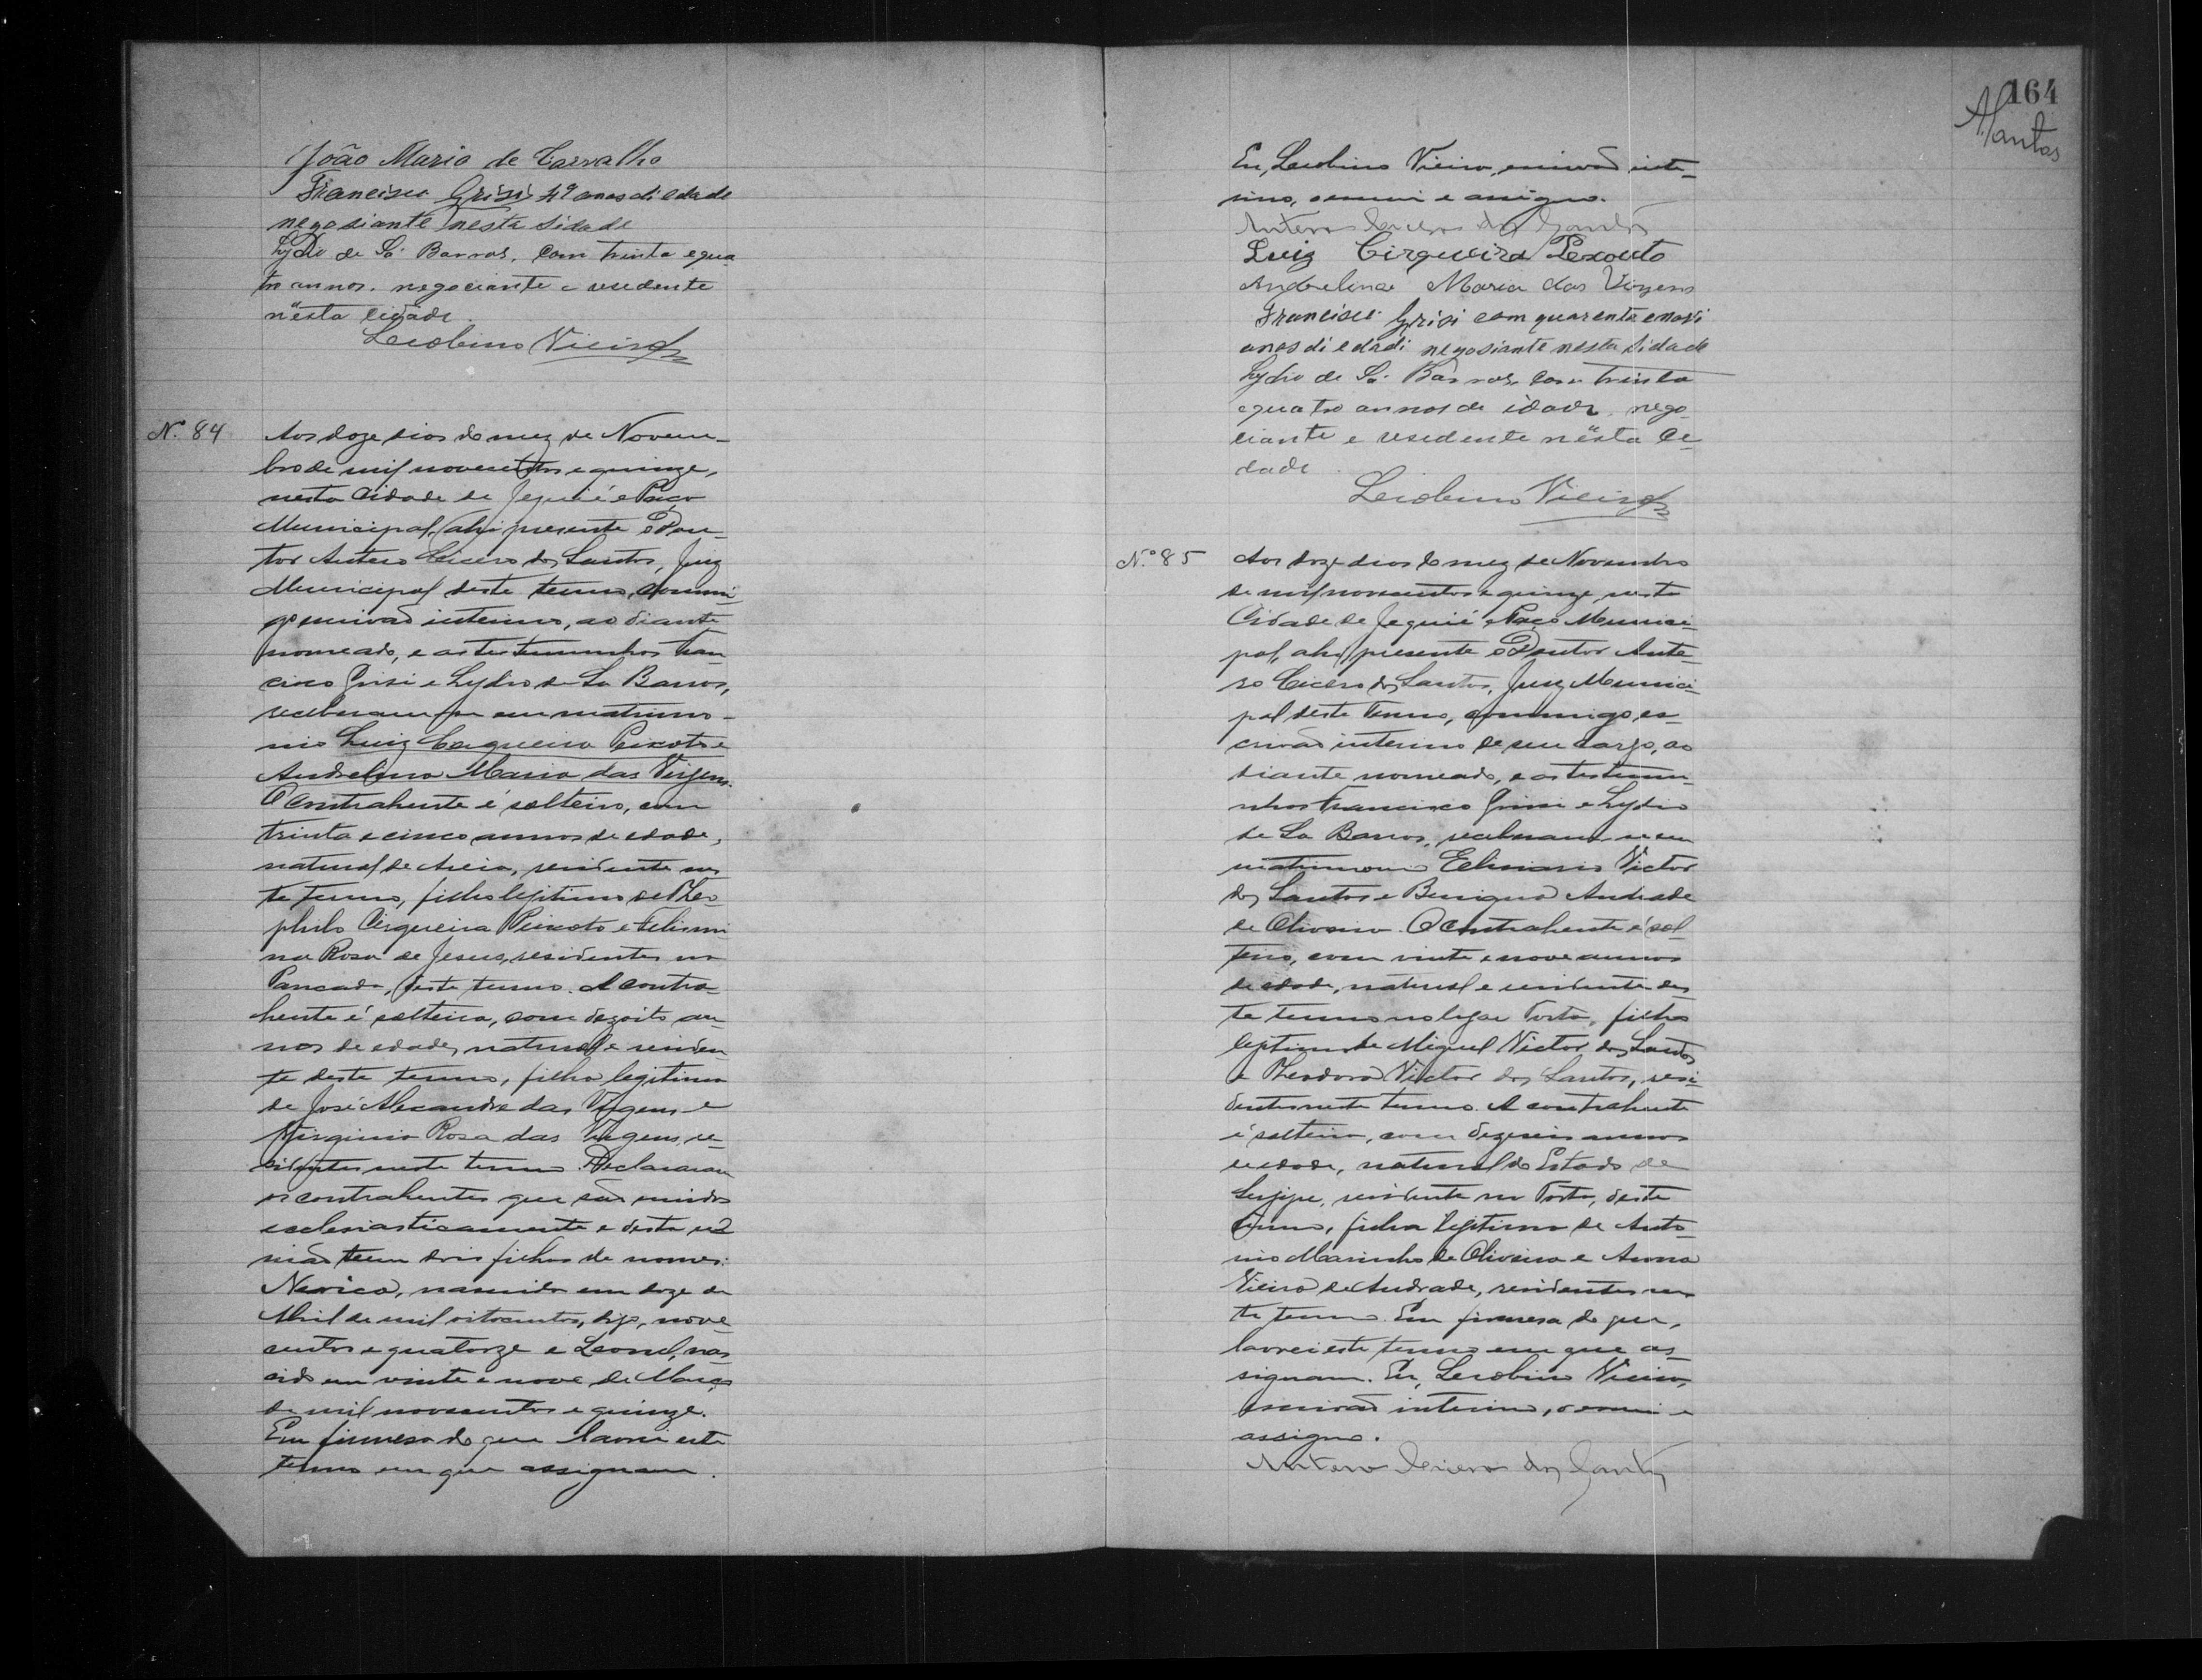 João Maria de Carvalho
Francisco Grisi 49 anos di edade
negosiante nesta Sidade
Lydio de Sá Barros, com trinta e qua
tro annos. negociante e resedente
nësta cidade.
Leolino Vieira
Nº 84
Aos doze dias do mez de Novem-
bro de mil novecentos e quinze,
nesta Cidade de Jequié e Paço
Municipal, ahi presente o Dou-
tor Antero Cicero dos Santos, Juiz
Municipal deste termo, commi-
go escrivão interino, ao diante
nomeado, e as testemunhas Fran-
cisco Grisi e Lydio de Sa Barros,
receberam-se em matrimo-
nio Luiz Cerqueira Peixoto e
Andrelina Maria das Virgens.
O contrahente é solteiro, com
trinta e cinco annos de edade,
natural de Areia, residente nes
te termo, filho legitimo de Theo
philo Cirqueira Peixoto e Felismi
na Rosa de Jesus, residentes no
Pancada, deste termo. A contra-
hente é solteira, com dezoito an-
nos de edade, natural e residen-
te deste termo, filha legitima
de José Alexandre das Virgens e
Virginia Rosa das Virgens, re-
sidentes neste termo. Declararam
os contrahentes que são unidos
ecclesiasticamente e desta u-
nião teem dois filhos de nomes:
nascido em doze de
Abril de mil oitocentos, digo, nove-
centos e quatorze e Leonel, nas
cido em vinte e nove de Março
de mil novecentos e quinze.
Em firmesa do que lavrei este
termo em que assignam.
164
Eu, Leolino Vieira, escrivão inte-
rino, escrevi e assigno.
Antero Cicero dos Santos
Luiz Cirqueira Pexouto
Andrelina Maria das Virgens
Francisco Grisi com quarenta e novi
anos di edadi negosiante nesta Sidade
Lydio de Sá Barros, com trinta
e quatro annos de idade, nego-
ciante e resedente nësta Ci-
dade.
Leolino Vieira
Nº 85
Aos doze dias do mez de Novembro
de mil novecentos e quinze, nesta
Cidade de Jequié e Paço Munici-
pal, ahi presente o Doutor Ante-
ro Cicero dos Santos, Juiz Munici-
pal deste termo, commigo es-
crivão interino de seu cargo, ao
diante nomeado, e as testemu-
nhas Francisco Grisi e Lydio
de Sa Barros, receberam-se em
matrimonio Victor
dos Santos e Benigna Andrade
de Oliveira. O contrahente é sol-
teiro, com vinte e nove annos
de edade, natural e residente des
te termo no lugar filho
legitimo de Miguel Victor dos Santos
e Theodora Victor dos Santos, resi-
dentes neste termo. A contrahente
é solteira, com dezeseis annos
de edade, natural do Estado de
Sergipe, residente no deste
termo, filha legitima de Anto-
nio Marinho de Oliveira e Anna
Vieira de Andrade, residentes nes
te termo. Em firmesa do que,
lavrei este termo em que as-
signam. Eu, Leolino Vieira,
escrivão interino, o escrevi e
assigno.
Antero Cicero dos Santos